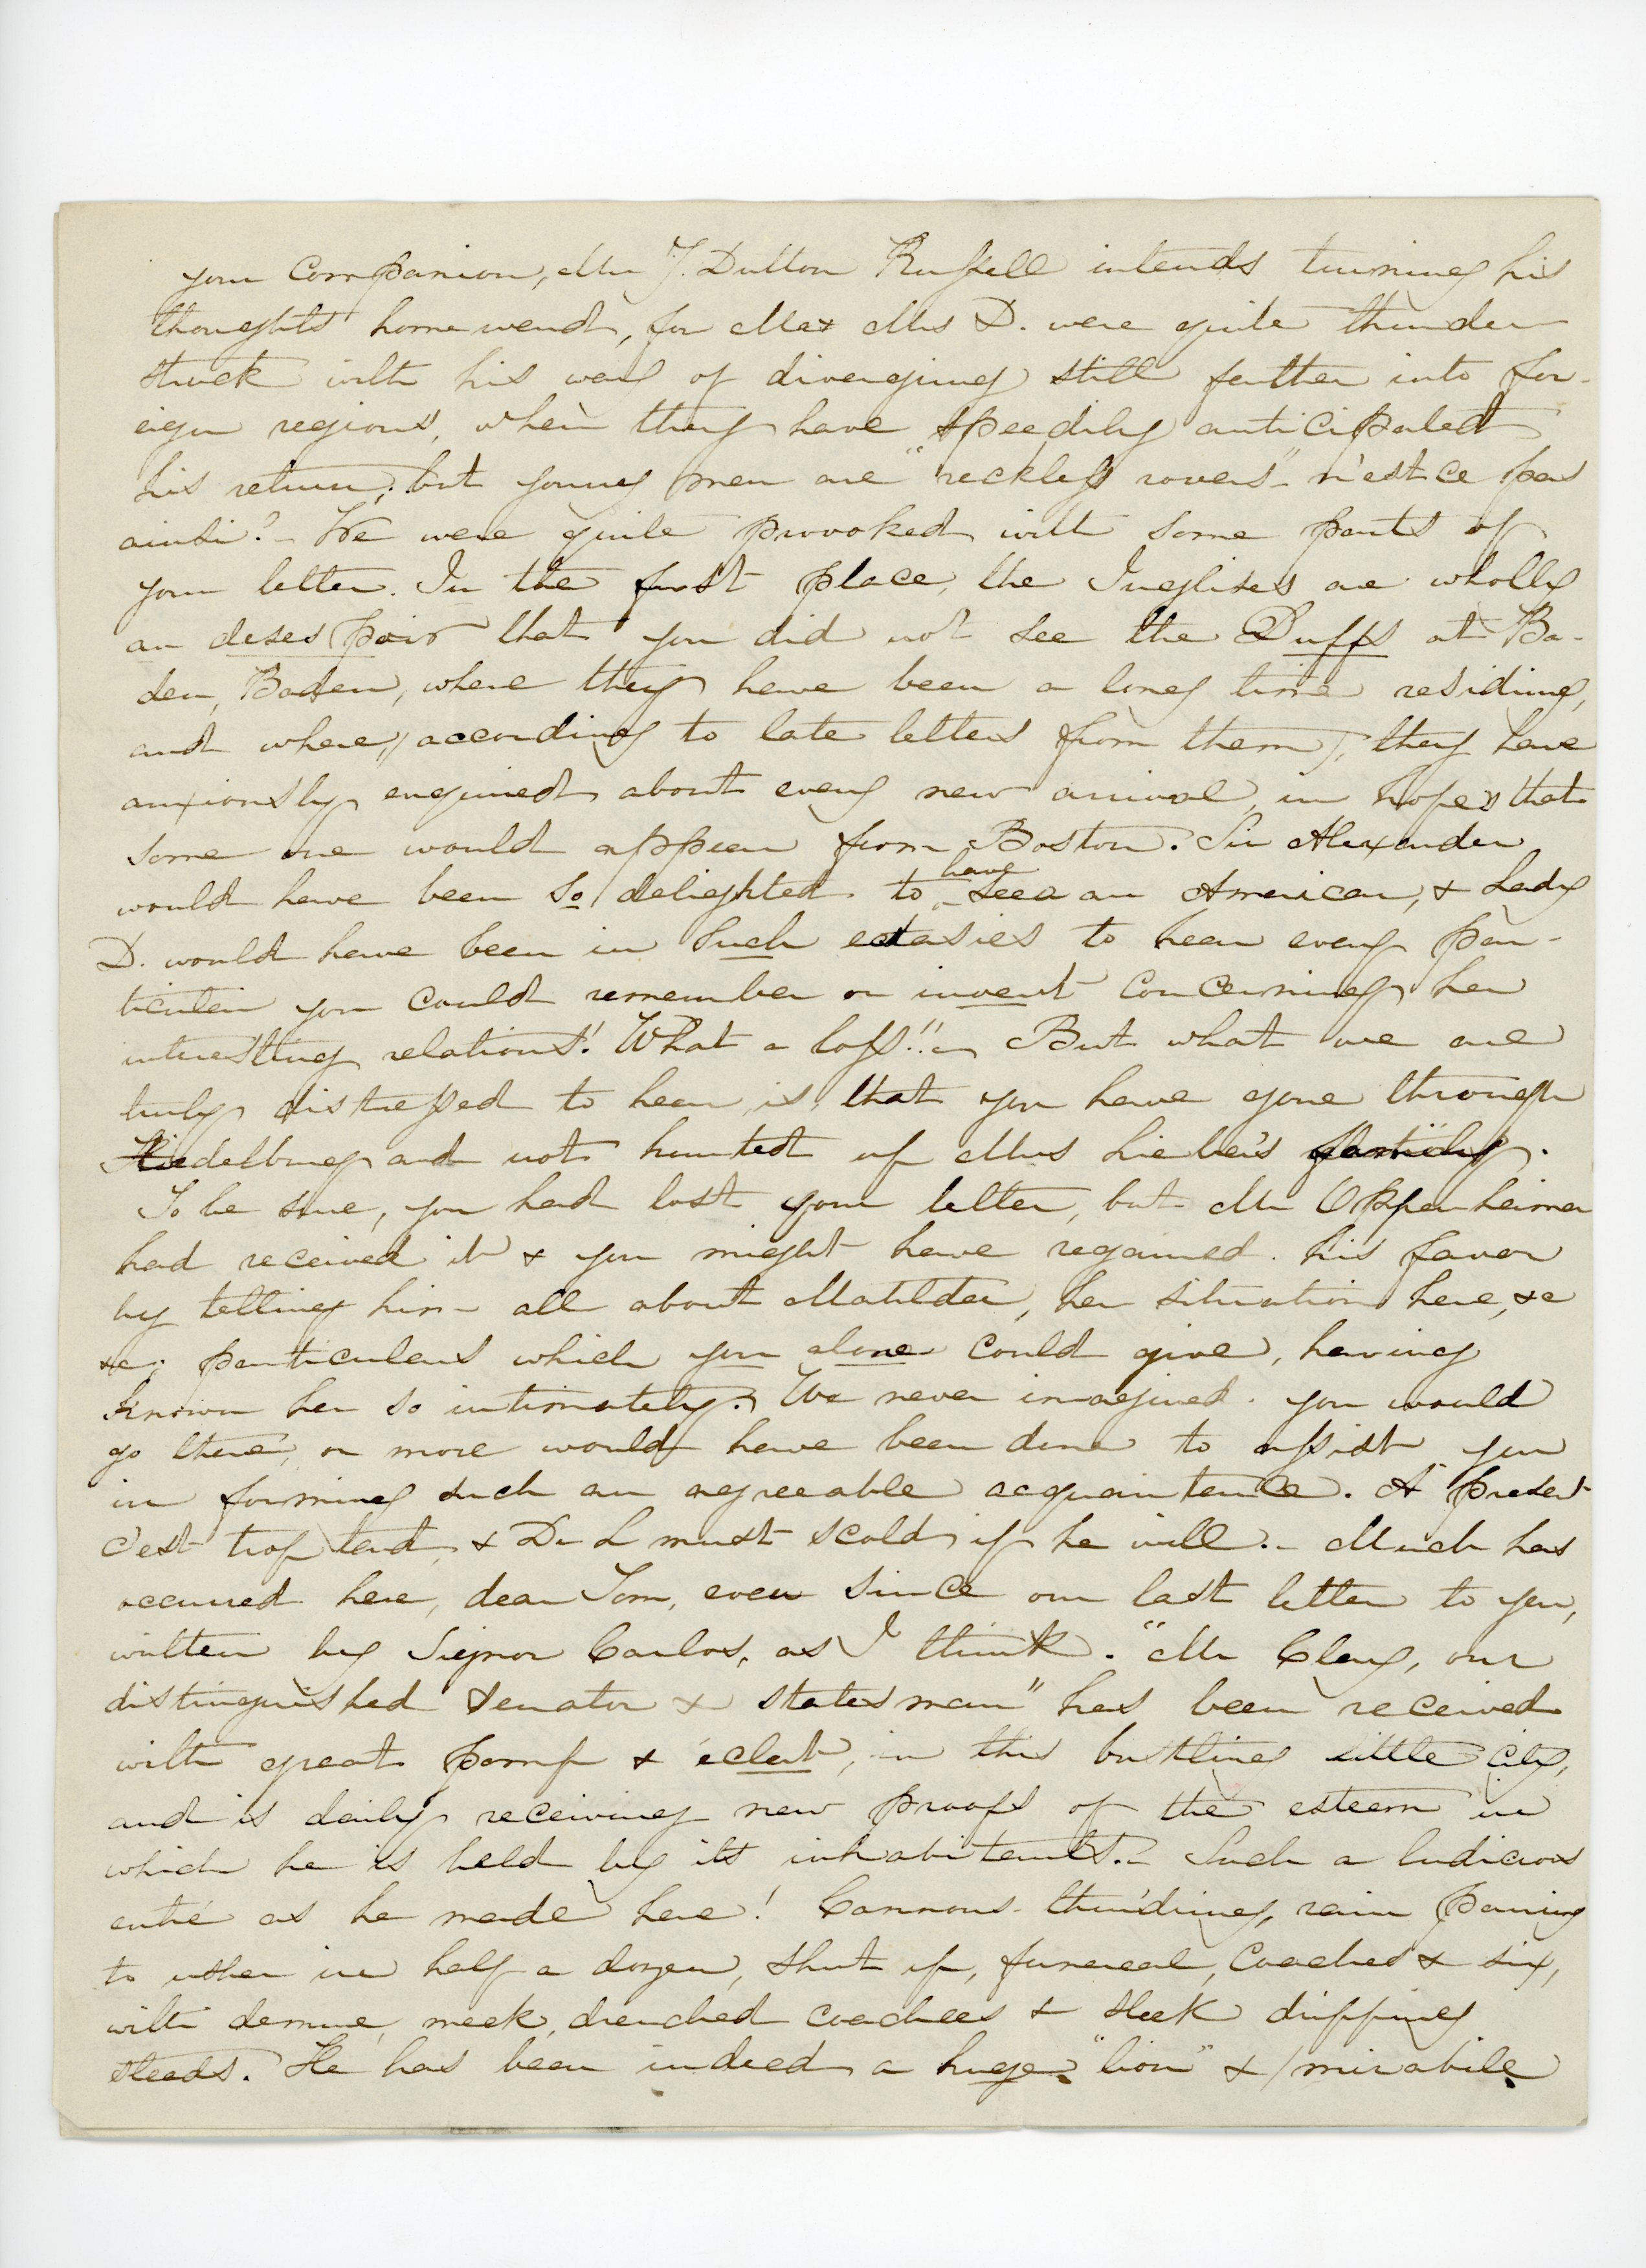 your Companion, Mr J. Dutton Russell intends turning his
thoughts homeward, for Mr & Mrs D. were quite thunder
struck with his way of diverging still farther into for-
eign regions, when they have speedily anticipated
his return; but young men are "reckless rovers" - n'est ce pas
ainsi? - We were quite provoked with some parts of
your letter. In the first place, the Inglises are wholly
au desespoir that you did not see the Duffs at Ba-
den, Baden, where they have been a long time residing,
and where, (according to late letters from them), they have
anxiously enquired about every new arrival, in hopes that
some one would appear from Boston. Sir Alexander
would have been so delighted to have seen an American, & Lady
D. would have been in such ectasies to hear every par-
ticular you could remember or invent concerning her
interesting relations! What a loss!! - But what we are
truly distressed to hear, is, that you have gone through
Hiedelburg and not hunted up Mrs Lieber's family.
To be sure, you had lost your letter, but Mr Oppenheimer
had received it & you might have regained his favor
by telling him all about Matilda, her situation here, &c
&c; particulars which you alone could give, having
known her so intimately. We never imagined you would
go there, or more would have been done to assist you
in forming such an agreeable acquaintance. A' present
c'est trop tard, & Dr L must scold if he will. - Much has
occurred here, dear Tom, even since our last letter to you,
written by Signor Carlos, as I think. "Mr Clay, our
distinguished senator & statesman" has been received
with great pomp & éclat, in this bustling little city,
and is daily receiving new proofs of the esteem in
which he is held by its inhabitants. - Such a ludicrous
entré as he made here! Cannons thund'ring, rain pouring
to usher in half a dozen, shut up, funereal, coaches & six,
with demure, meek, drenched coachees & sleek dripping
steeds. He has been indeed a huge "lion" & (mirabile